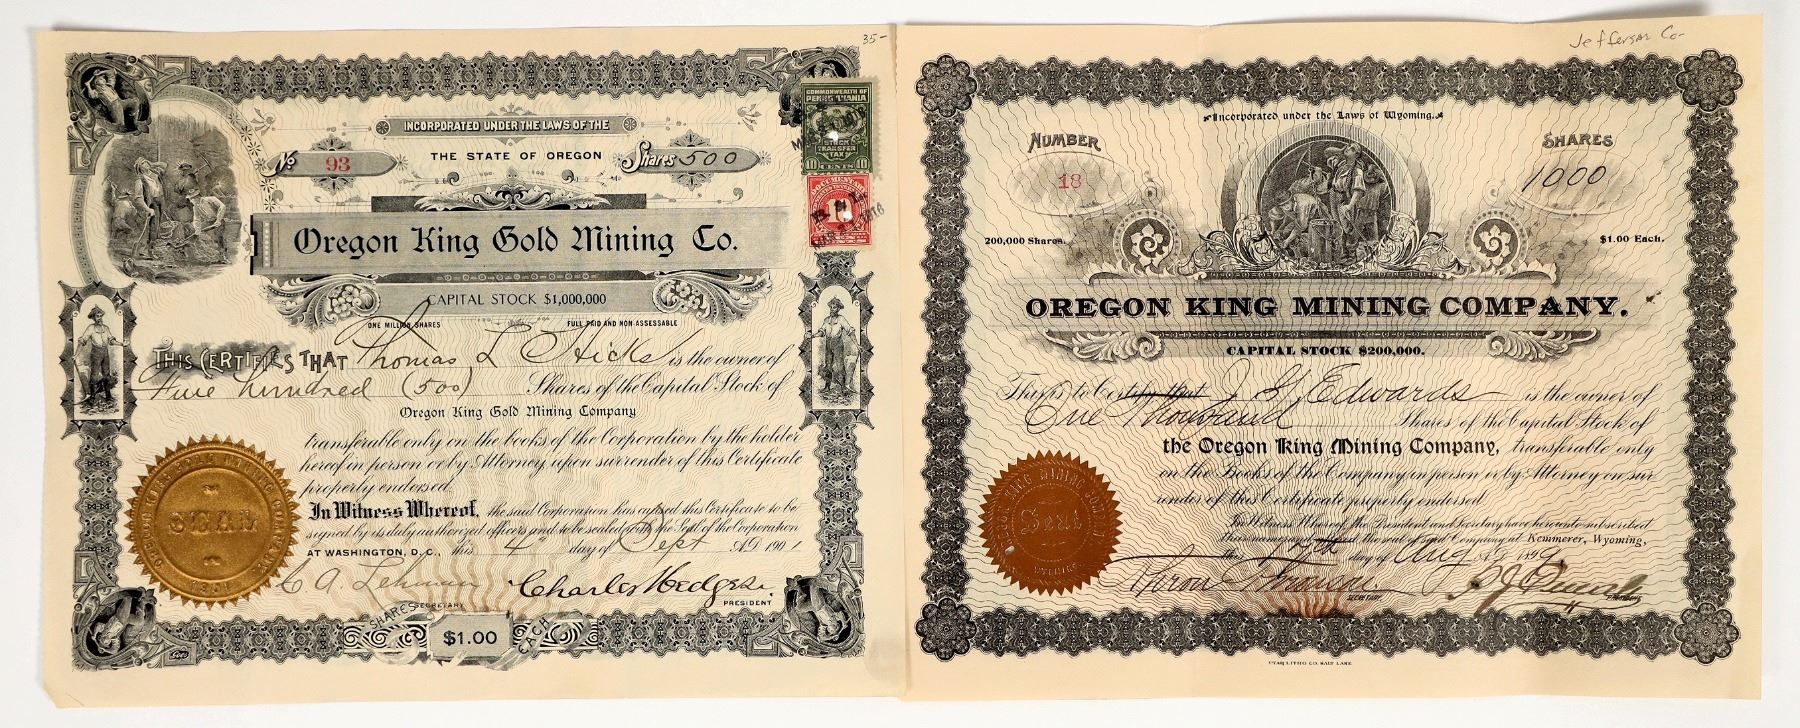 35-
INCORPORATED UNDER THE LAWS OF THE
THE STATE OF OREGON
No 93
Shares 500
COMMONWEALTH OF
PENNSYLVANIA
STOCK
TRANSFER
TAX
10 CENTS 10
DOCUMENTARY
Oregon King Gold Mining Co.
CAPITAL STOCK $1,000,000
ONE MILLION SHARES FULL PAID AND NON-ASSESSABLE
THIS CERTIFIES THAT Thomas L Hicks is the owner of
Five hundred (500) Shares of the Capital Stock of
Oregon King Gold Mining Company
transferable only on the books of the Corporation by the holder
hereof in person or by Attorney upon surrender of this Certificate
properly endorsed.
In Witness Whereof, the said Corporation has caused this Certificate to be
signed by its duly authorized officers and to be sealed with the Seal of the Corporation
AT WASHINGTON, D.C., this 4th day of Sept A.D. 1901
OREGON KING GOLD MINING COMPANY
SEAL
C A Lehman
SECRETARY
Charles Hedges
PRESIDENT
SHARES $1.00 EACH
Jefferson Co-
Incorporated under the Laws of Wyoming.
NUMBER
18
SHARES
1000
200,000 Shares.
$1.00 Each.
OREGON KING MINING COMPANY.
CAPITAL STOCK $200,000.
This is to Certify that J S Edwards is the owner of
One Thousand Shares of the Capital Stock of
the Oregon King Mining Company, transferable only
on the Books of the Company in person or by Attorney on sur
render of this Certificate properly endorsed.
In Witness Whereof, the President and Secretary have hereunto subscribed
their names and affixed the seal of said Company at Kemmerer, Wyoming,
this 17th day of Aug A.D. 1899
OREGON KING MINING COMPANY
Seal
WYOMING
SECRETARY.
PRESIDENT.
UTAH LITHO CO. SALT LAKE